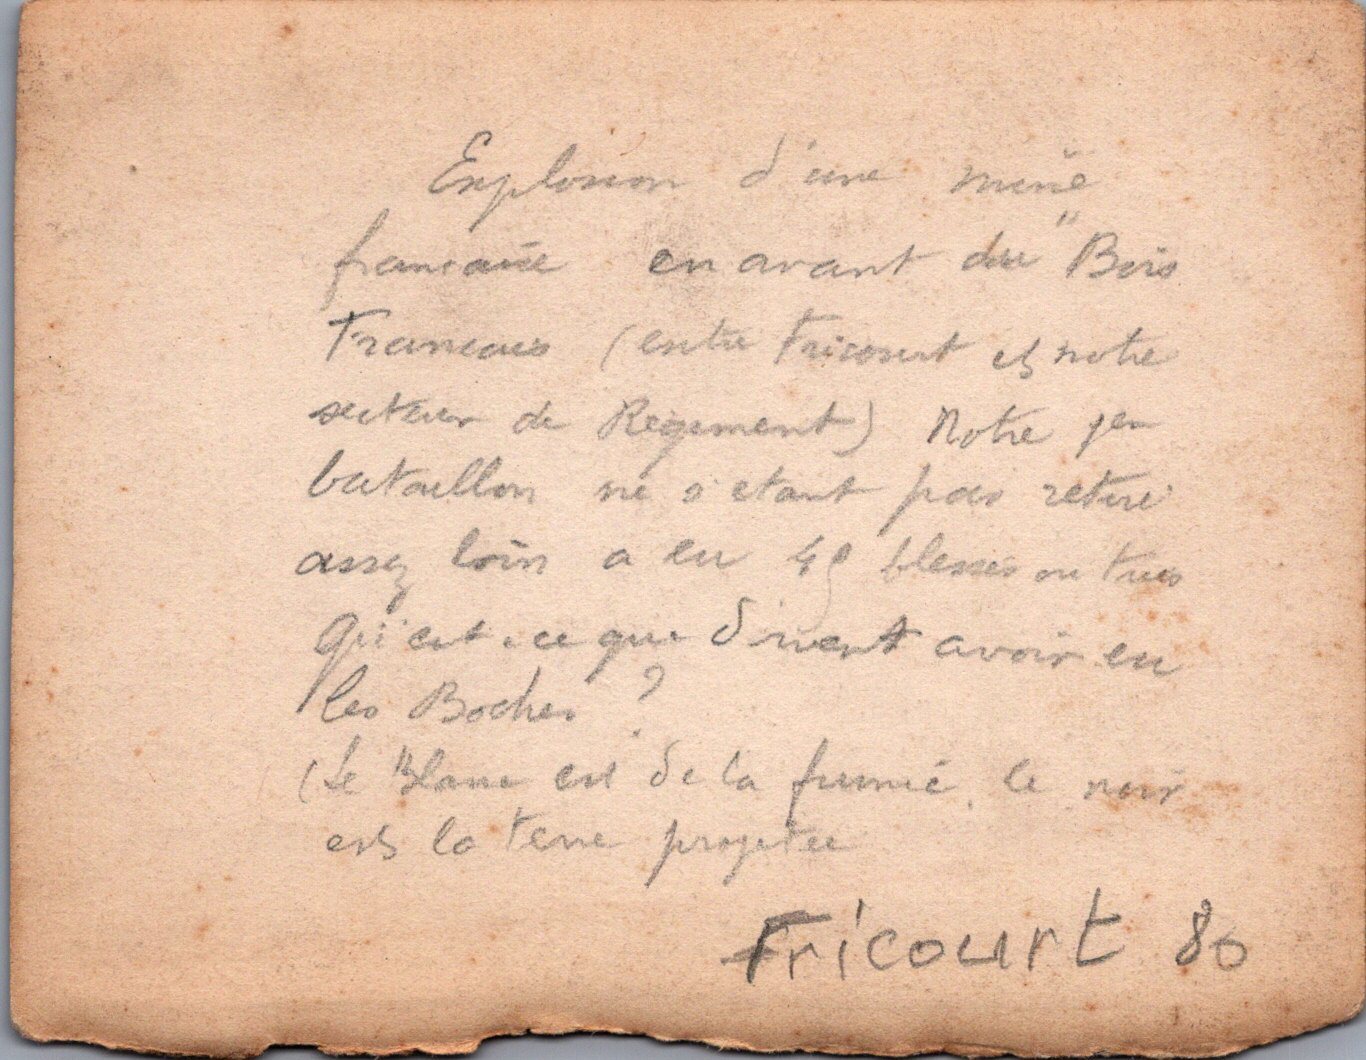 Explosion d'une mine
francaise en avant du "Bois
Francais (entre Fricourt et notre
secteur de Regiment) Notre 1er
bataillon ne s'etant pas retiré
assez loin a eu 49 blesses ou tues
Qu'est-ce que doivent avoir eu
les Boches ?
(Le blanc est de la fumée, le noir
est la terre projetée
Fricourt 80